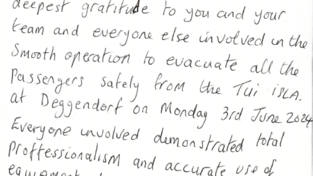 deepest gratitude to you and your
team and everyone else involved in the
Smooth operation to evacuate all the
Passengers safely from the Tui isLA.
at Deggendorf on Monday 3rd June 2024
Everyone involved demonstrated total
Proffessionalism and accurate use of
equipment